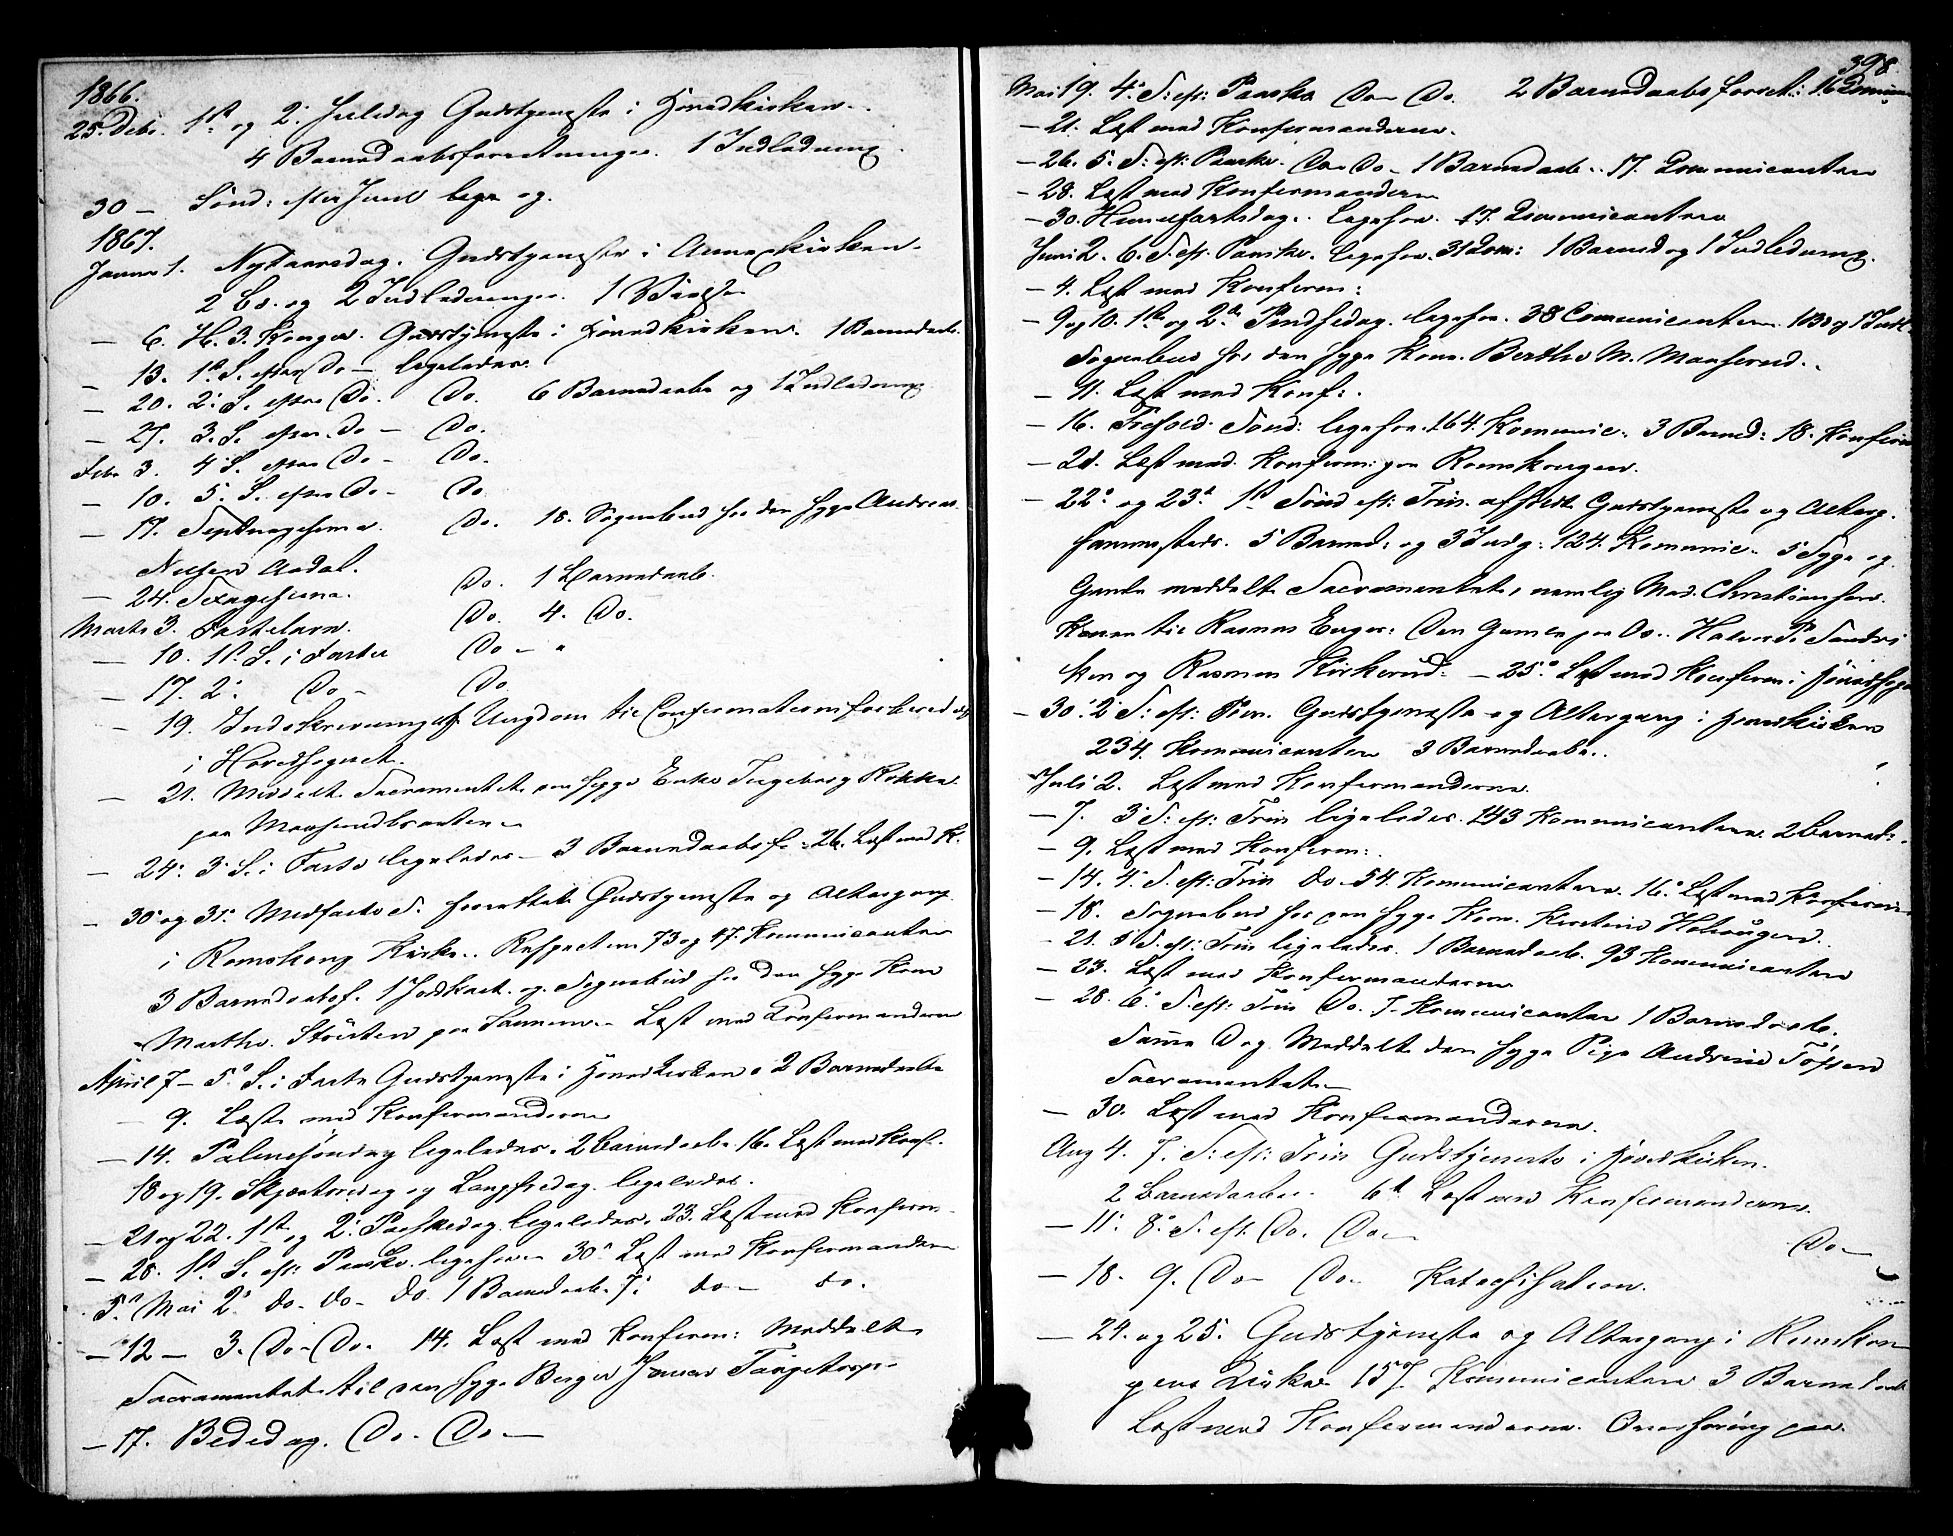 1866.
25. Debr. 1st og 2. Juledag Gudstjeneste i Hovedkirken.
4 Barnedaabsforretninger. 1 Indledning.
30 – Sönd: efter Juul lige og.
1867.
Januar 1. Nytaarsdag. Gudstjeneste i Annexkirken.
2 B. og 2 Indledninger. 1 Vielse
– 6. H. 3. Konger. Gudstjeneste i Hovedkirken. 1 Barnedaab.
– 13. 1st S. efter Do – ligeledes.
– 20. 2: S. efter Do. Do. 6 Barnedaabe og 1 Indledning
– 27. 3. S. efter Do – Do.
Febr 3. 4 S. efter Do – Do.
– 10. 5. S. efter Do – Do
– 17. Septuagesima. Do. 18. Sognebud hos den syge Andreas
Nielsen Aadal.
– 24. Sexagesima. Do. 1 Barnedaab.
Marts 3. Fastelavn. Do. 4. Do.
– 10. 1st. S. i Faste Do – "
– 17. 2: Do – Do
– 19. Indskrivning af Ungdom til Confermationsforbered
i Hovedsognet.
– 21. Meddelt Sacramentet den syge Enke Ingeborg Kokke
paa Monsrudbraaten
– 24: 3 S. i Faste ligeledes – 3 Barnedaabsf. – 26. Læst med K.
– 30 og 31. Midfaste S. forrettet Gudstjeneste og Altergang
i Romskoug Kirke. Respective 73 og 47 Kommunicanter
3 Barnedaabsf. 1 Jordkast. og Sognebud hos den syge Kone
Marthe Stöisten paa . Læst med Konfermanderne
April 7 – 5. S. i Faste Gudstjeneste i Hovedkirken. 2 Barnedaabe
9. Læst med Konfermanderne
– 14. Palmesöndag ligeledes. 2 Barnedaabe. 16. Læst med Konf.
18 og 19. Skjærtorsdag og Langfredag ligeledes.
– 21 og 22. 1st og 2: Paaskedag ligeledes. 23. Læst med Konferm.
– 28. 1st. S. eft: Paaske ligesaa – 30. Læst med Konfermanderne
5. Mai 2. do. do – do. 1 Barnedaab. 7: do – do.
– 12 – 3. Do – Do. 14. Læst med Konferm: Meddelt
Sacramentet til den syge Berger Jensen
– 17. Bededag. Do – Do –
398.
Mai 19. 4. S: eft: Paaske Do – Do. 2 Barnedaabsforret: 16
– 21. Læst med Konfermanderne.
– 26. 5. S: eft: Paaske. Do Do – 1 Barnedaab. 17. Communicantere
– 28. Læst med Konfermanderne
– 30. Himmelfartsdag. ligesaa. 17. Communicantere
Juni 2. 6. S. eft. Paaske. ligesaa. 31 Com: 1 Barned og 1 Indledning.
– 4. Læst med Konferm:
– 9 og 10. 1ste og 2den Pindsedag. ligesaa. 38 Communicantere. 1 Bd og 1 Indl.
Sognebud hos den syge Kone Berthe M. Monserud.
– 11. Læst med Konf:
– 16. Trefold. Sönd: ligesaa. 164. Kommunic: 3 Barned: 18. Konferm
– 21. Læst med Konferm: paa Romskougen.
– 22. og 23. 1st Sönd eft: Trin. afholdt Gudstjeneste og Alterg.
sammesteds. 5 Barned: og 3 Indg: 124. Kommunic. 5 Syge og
Gamle meddelt Sacramentet, nemlig Mad. Christiansen.
Konen til Rasmus Enger: Den Gamle paa Do.. Halvor P.
og Rasmus Kirkerud: – 25. Læst med Konferm i Hovedsogn
– 30. 2 S: eft: Trin. Gudstjeneste og Altergang i Hovedkirken
234. Kommunicantere 3 Barnedaabe..
Juli 2. Læst med Konfermanderne.
– 7. 3 S: eft: Trin ligeledes. 143 Kommunicantere. 2 Barned:.
– 9. Læst med Konferm:.
– 14. 4. S. eft: Trin Do. 54. Kommunicantere. 16. Læst med Konferm
– 18. Sognebud hos den syge Kone. Kirstine
– 21. 5 S. eft: Trin ligeledes. 1 Barnedaab. 93 Kommunicantere
– 23. Læst med Konfermanderne
– 28. 6. S. eft: Trin Do. 7. Kommunicanter 1 Barnedaab.
Samme Dag Meddelt den syge Pige Andrine
Sacramentet –
– 30. Læst med Konfermanderne.
Aug 4. 7. S: eft: Trin Gudstjeneste i Hovedkirken.
2 Barnedaabe. 6t Læst med Konfermanderne.
– 11. 8. S. eft. Do. Do – Do –
– 18. 9. Do – Do – Katechisation.
– 24. og 25. Gudstjeneste og Altergang i Romskou
gens Kirke 157. Kommunicantere 3 Barnedaab
Læst med Konfermanderne. Overhöring paa